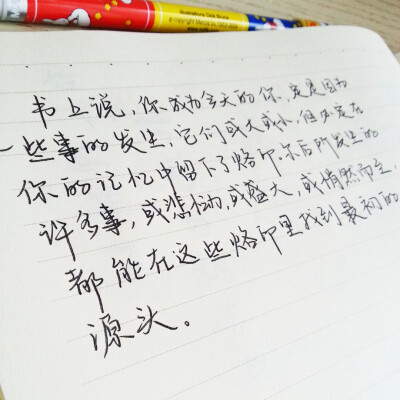 书上说，你成为今天的你，定是因为
一些事的发生，它们或大或小，但必定在
你的记忆中留下了烙印。尔后所发生的
许多事，或悲恸，或盛大，或悄然而至，
都能在这些烙印里找到最初的
源头。